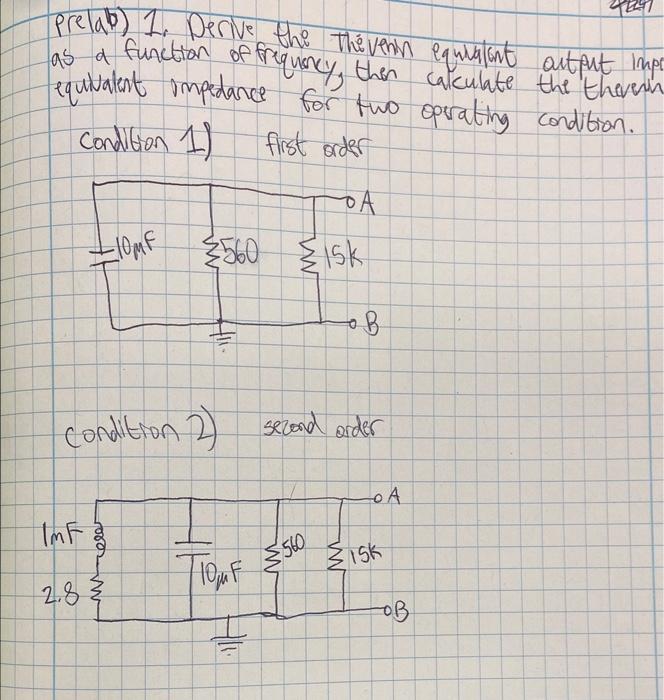 Prelab) 1. Derive the Thevenin equivalent output impe
as a function of frequency, then calculate the theveni
equivalent impedance for two operating condition.
Condition 1) first order
A
10µF 560 15K
B
Condition 2) second order
A
1mF 560 15K
10µF
2.8
B